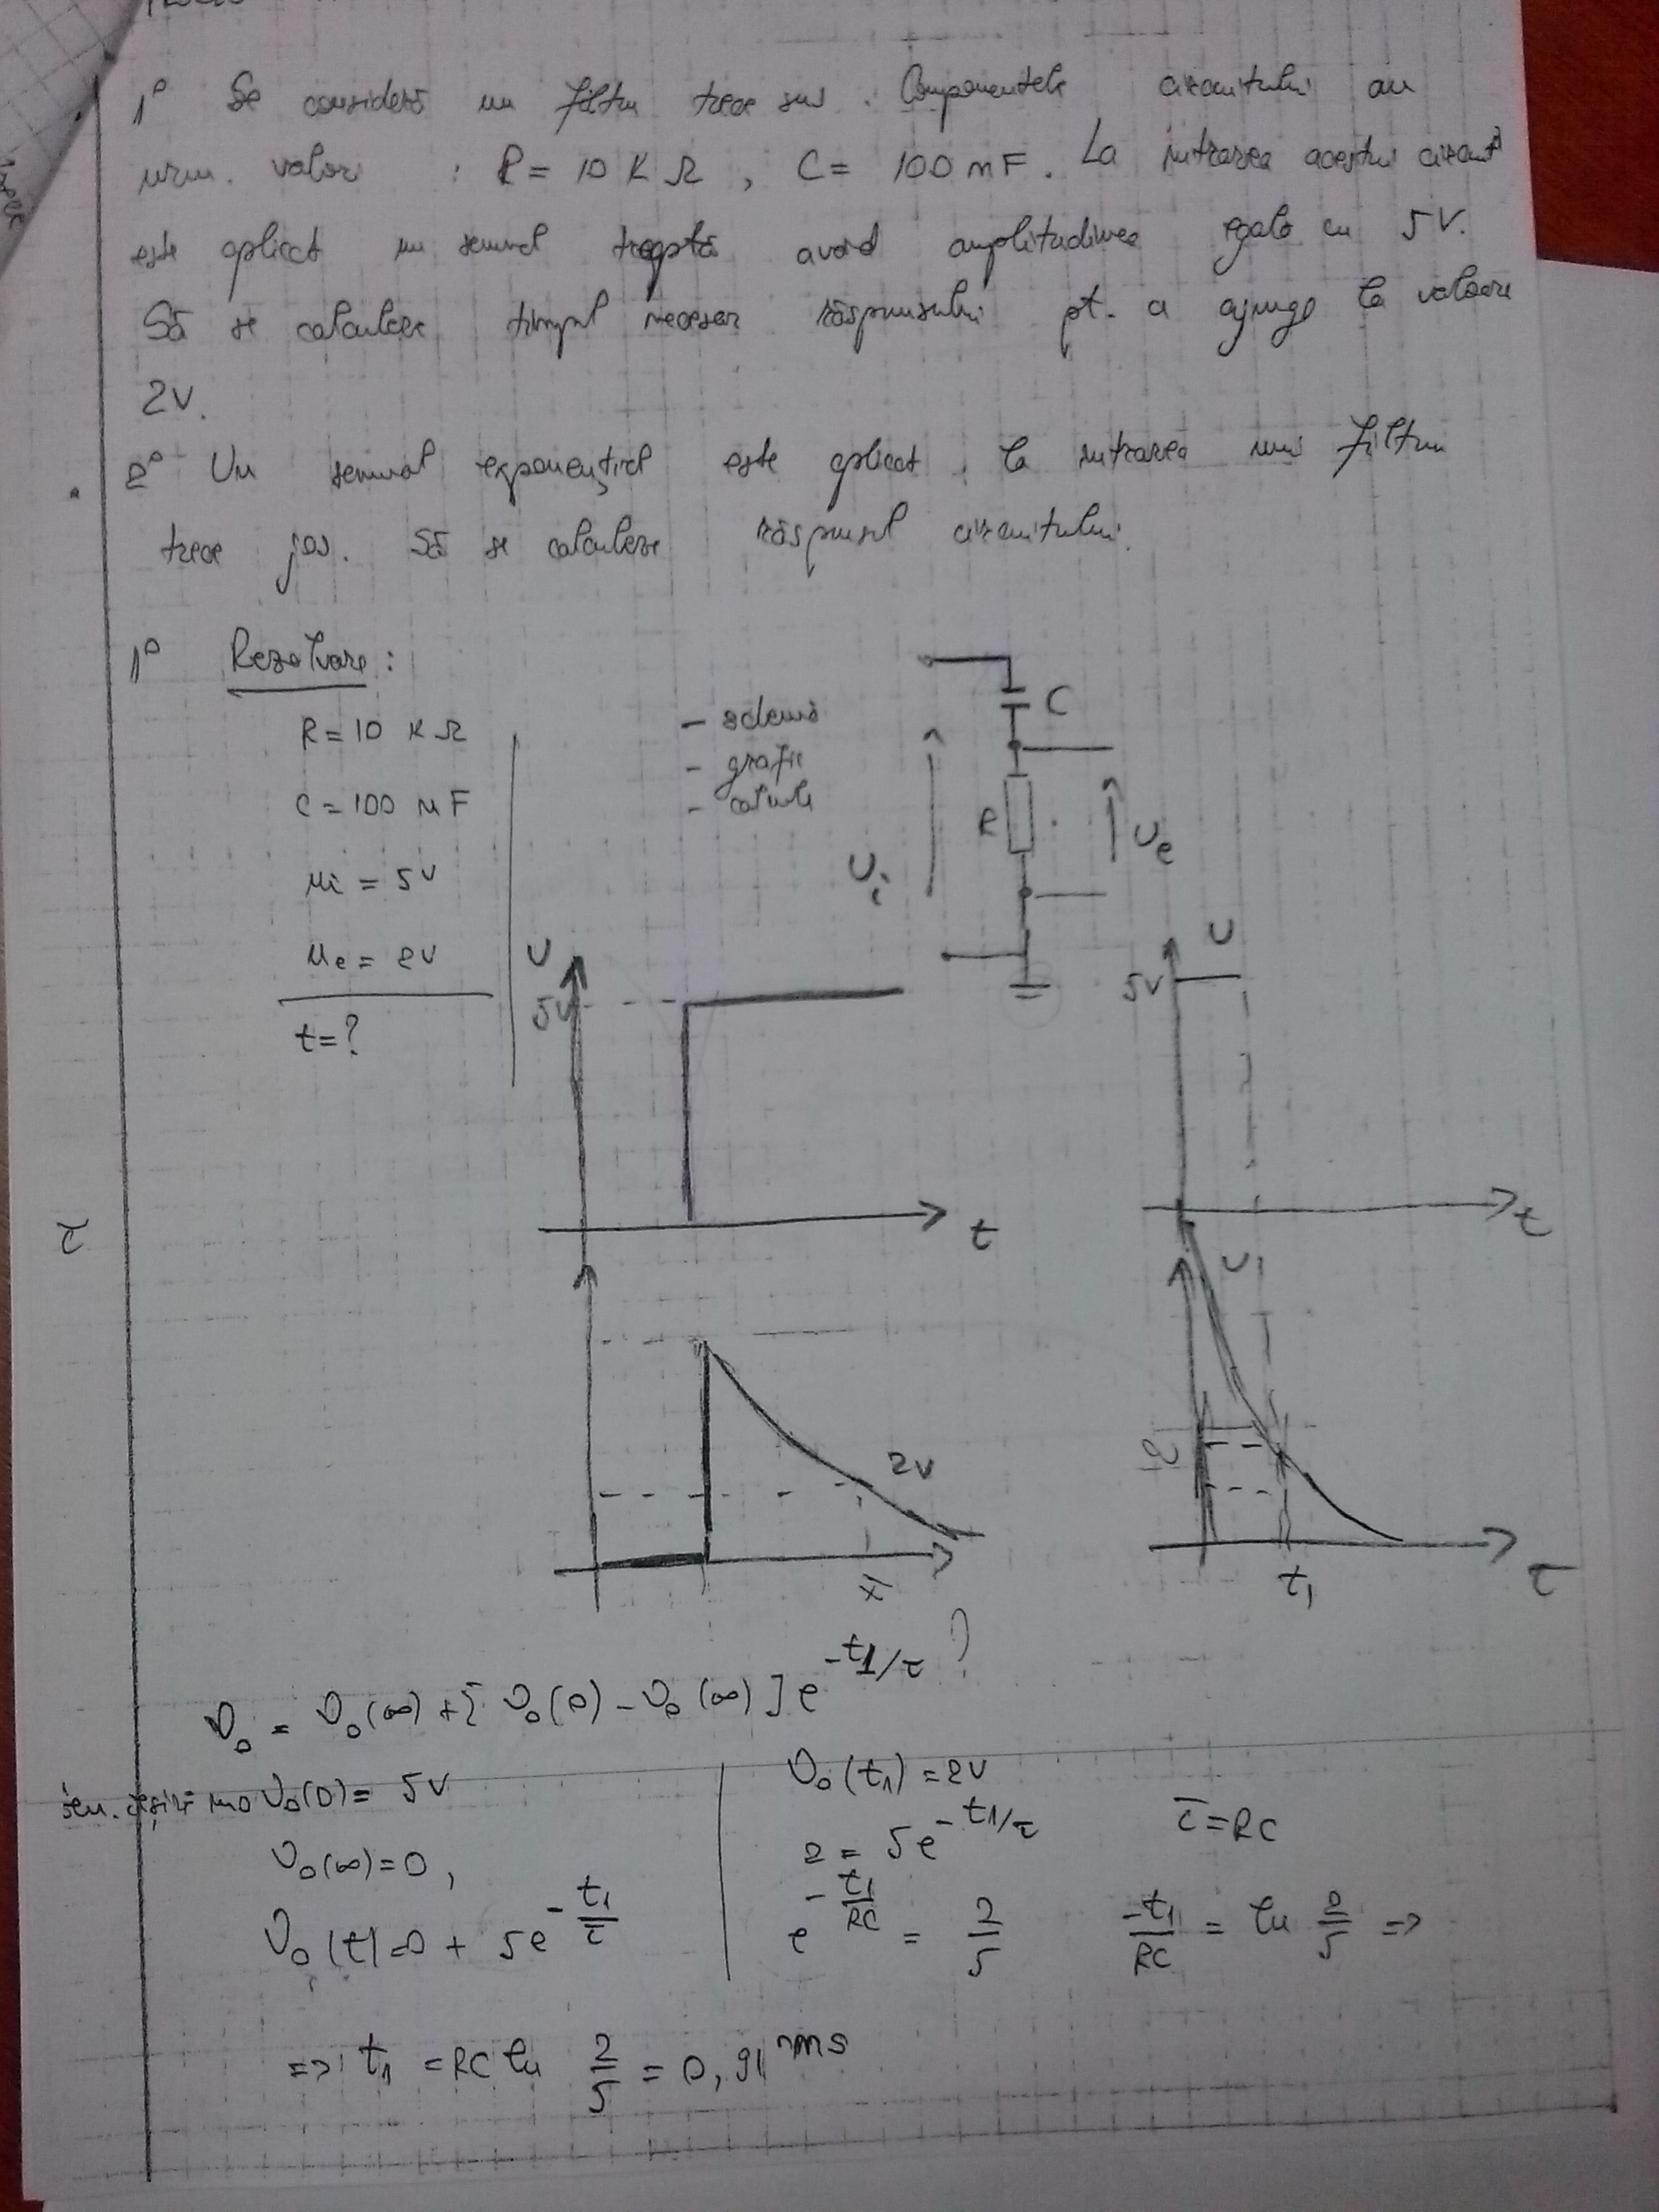 1° Se consideră un filtru trece sus. Componentele circuitului au
urm. valori : R = 10 KΩ, C = 100 nF. La intrarea acestui circuit
este aplicat un semnal treaptă având amplitudinea egală cu 5V.
Să se calculeze timpul necesar răspunsului pt. a ajunge la valoare
2V.
2° Un semnal exponențial este aplicat la intrarea unui filtru
trece jos. Să se calculeze răspunsul circuitului.
1° Rezolvare:
R = 10 KΩ
C = 100 nF
ui = 5V
ue = 2V
t = ?
- schemă
- grafic
- calcule
C
R
Ui
Ue
U
5V
t
U
5V
t
τ
2V
U
2
t1
τ
υo = υo(∞) + [υo(0) - υo(∞)] e^-t1/τ ?
υo(0) = 5V
υo(∞) = 0,
υo(t) = 0 + 5e^-t1/τ
υo(t1) = 2V
2 = 5e^-t1/τ
τ = RC
e^-t1/RC = 2/5
-t1/RC = ln 2/5 =>
=> t1 = RC ln 2/5 = 0,91 ms